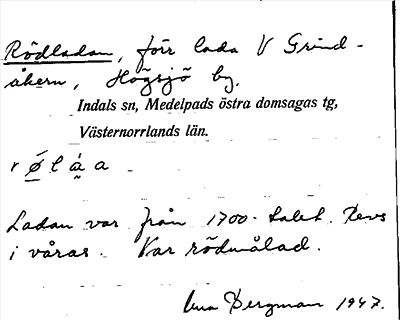 Rödladan, förr lada V Grind-
åkern, Högsjö by.
Indals sn, Medelpads östra domsagas tg,
Västernorrlands län.
r ø l á a
Ladan var från 1700-talet. Revs
i våras. Var rödmålad.
Bergman 1947.